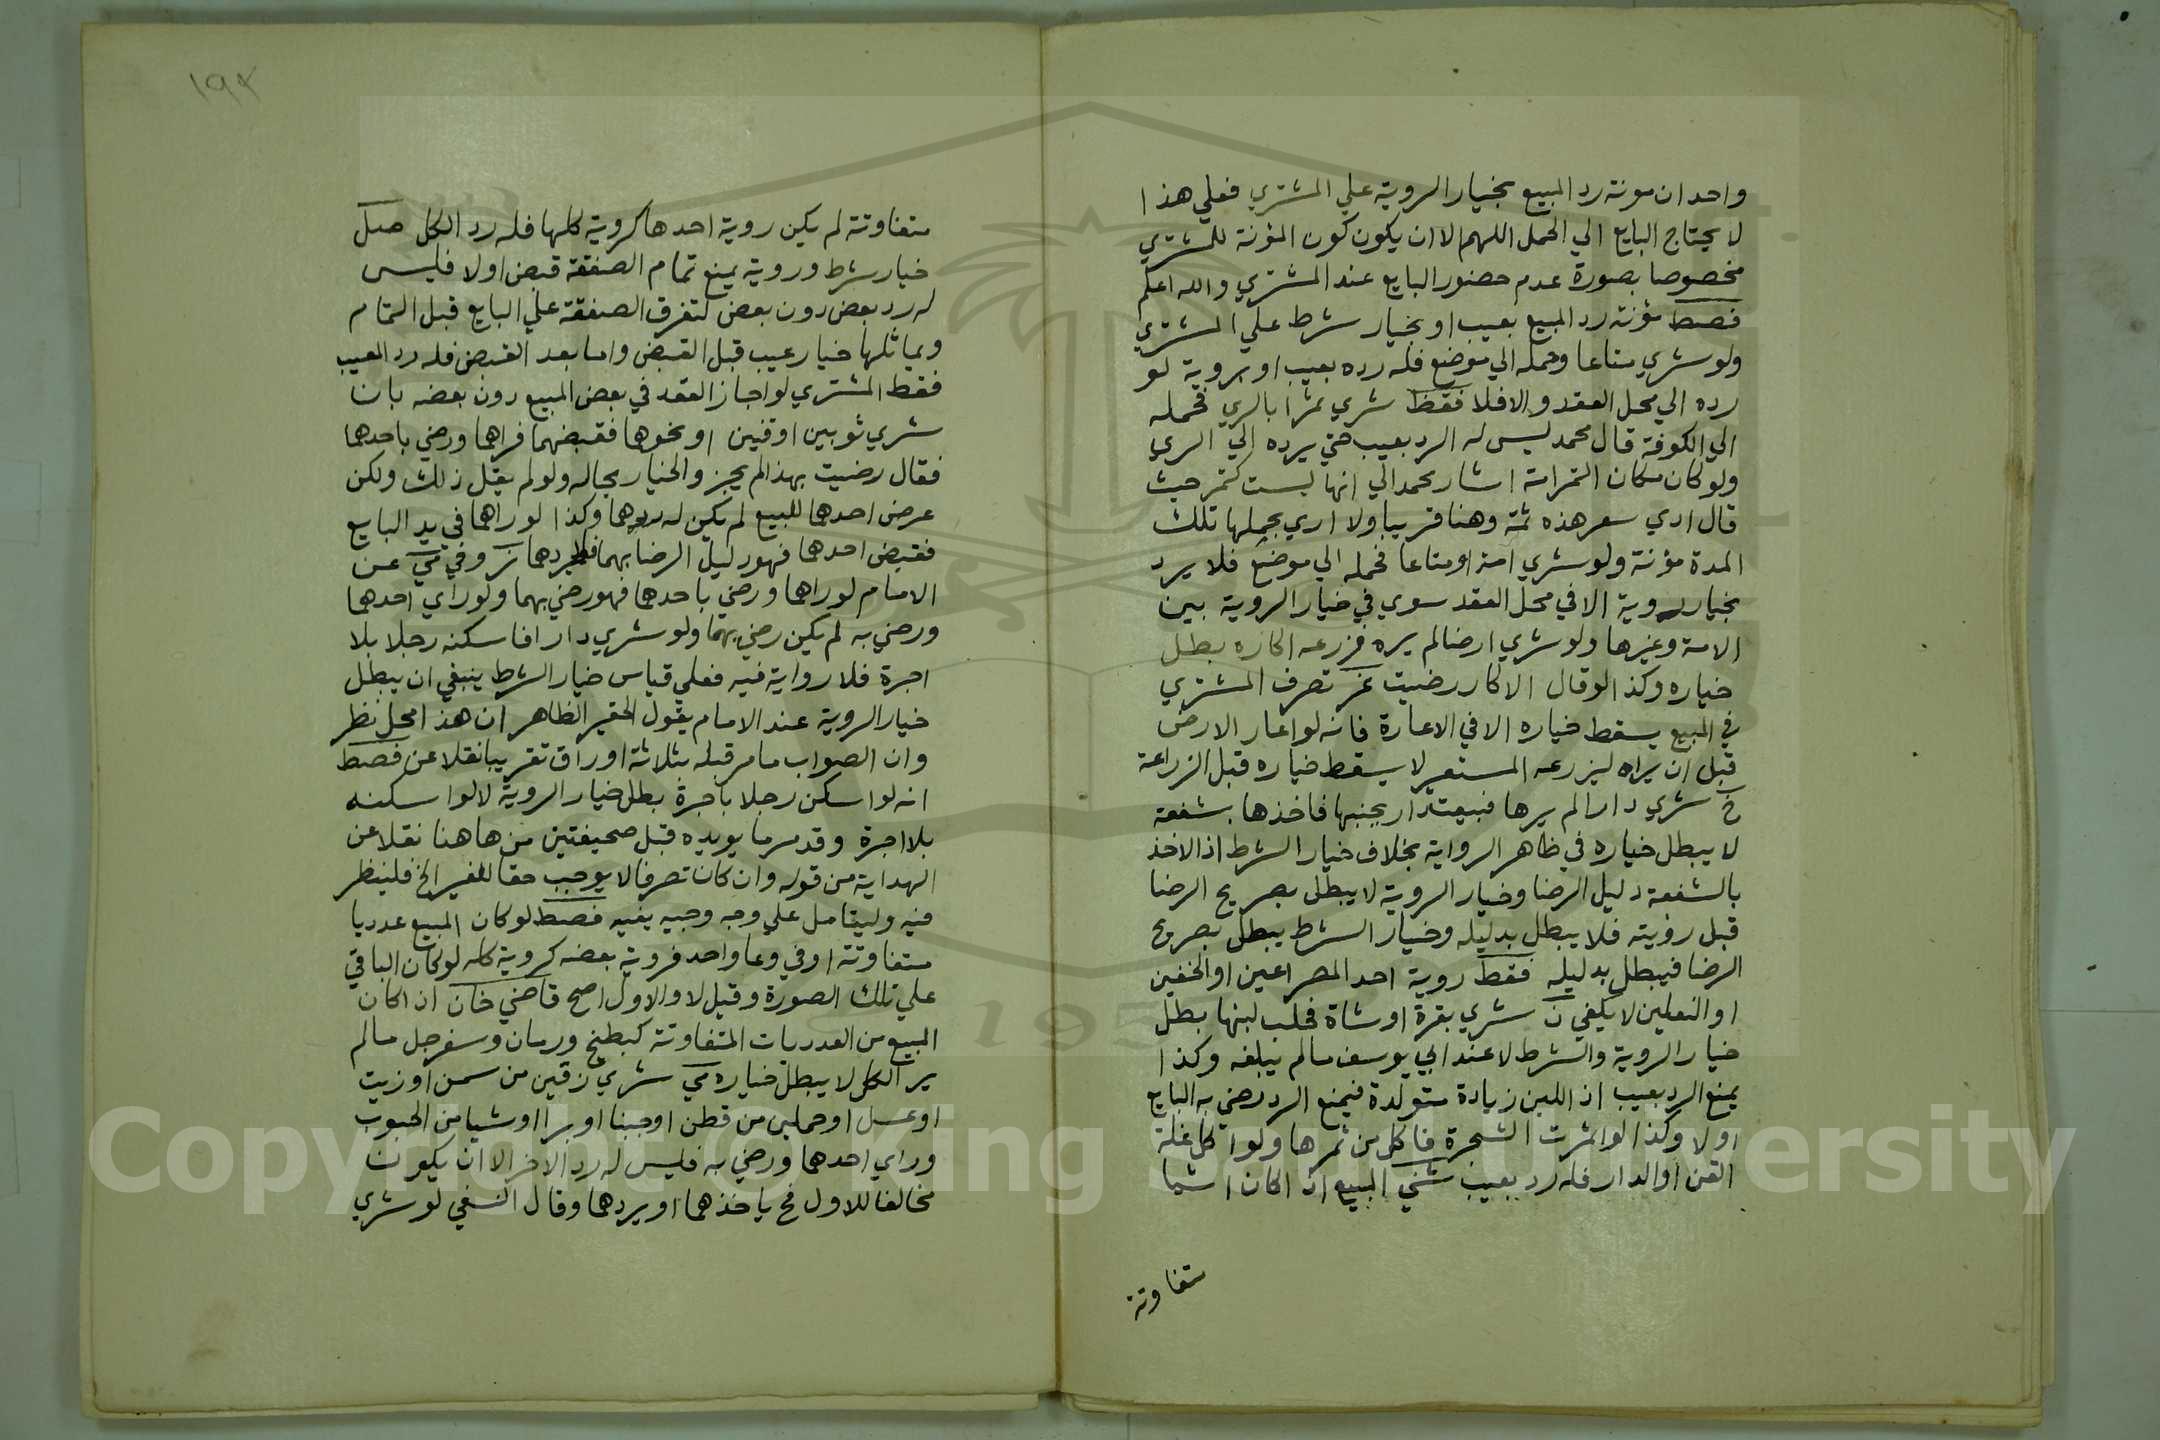 واحد ان مونة رد المبيع بخيار الروية علي المشتري فعلي هذا
لا يحتاج البايع الي الحمل اللهم الا ان يكون كون المؤنة للمشتري
مخصوصا بصورة عدم حضور البايع عند المشتري والله اعلم
فصط مؤنة رد المبيع بعيب او بخيار شرط علي المشتري
ولو شري متاعا وحمله الي موضع فله رده بعيب او بروية لو
رده الي محل العقد والا فلا فقظ شري تمرا بالري فحمله
الي الكوفة قال محمد ليس له الرد بعيب حتي يرده الي الري
ولو كان مكان التمر امة اشار محمد الي انها ليست كتمر حيث
قال ادي سعر هذه ثمة وهنا قريبا ولا اري بحملها تلك
المدة مؤنة ولو شري امة او متاعا فحمله الي موضع فلا يرد
بخيار روية الا في محل العقد سوي في خيار الروية بين
الامة وغيرها ولو شري ارضا لم يره فزرعه اكاره بطل
خياره وكذا لو قال الاكار رضيت تصرف المشتري
في المبيع يسقط خياره الا في الاعارة فانه لو اعار الارض
قبل ان يراه ليزرعه المستعير لا يسقط خياره قبل الزراعة
خ شري دارا لم يرها فبيعت دار بجنبها فاخذها بشفعة
لا يبطل خياره في ظاهر الرواية بخلاف خيار الشرط اذ الاخذ
بالشفعة دليل الرضا وخيار الروية لا يبطل بصريح الرضا
قبل رؤيته فلا يبطل بدليله وخيار الشرط يبطل بصريح
الرضا فيبطل بدليله فقظ روية احد المصراعين او الخفين
او النعلين لا يكفي ن شري بقرة او شاة فحلب لبنها بطل
خيار الروية والشرط لا عند ابي يوسف مالم يتلفه وكذا
يمنع الرد بعيب اذ اللبن زيادة متولدة فيمنع الرد رضي به البايع
اولا وكذا لو اثمرت الشجرة فاكل من ثمرها ولو اكل غلة
القن او الدار فله رد بعيب شخي المبيع ان كان اشيا
متفاوتة
١٩٢
متفاوتة لم يكن روية احدها كروية كلها فله رد الكل صل
خيار شرط وروية يمنع تمام الصفقة قبض اولا فليس
له رد بعض دون بعض لتفرق الصفقة علي البايع قبل التمام
ويماثلها خيار عيب قبل القبض واما بعد القبض فله رد المعيب
فقط المشتري لو اجاز العقد في بعض المبيع دون بعضه بان
شري ثوبين او قنين او نحوها فقبضهما فراهما ورضي باحدهما
فقال رضيت بهذا لم يجز والخيار بحاله ولو لم يقل ذلك ولكن
عرض احدهما للبيع لم يكن له ردهما وكذا لو راهما في يد البايع
فقبض احدهما فهو دليل الرضا بهما فلم يردهما وفي عن
الامام لو راهما ورضي باحدهما فهو رضي بهما ولو راي احدهما
ورضي به لم يكن رضي بهما ولو شري دارا فاسكنه رجلا بلا
اجرة فلا رواية فيه فعلي قياس خيار الشرط ينبغي ان يبطل
خيار الروية عند الامام يقول الحقير الظاهر ان هذا محل نظر
وان الصواب ما مر قبله بثلاثة اوراق تقريبا نقلا عن فصط
انه لو اسكن رجلا باجرة بطل خيار الروية لا لو اسكنه
بلا اجرة وقد مر ما يويده قبل صحيفتين من هاهنا نقلا عن
الهداية من قوله وان كان تصرفا لا يوجب حقا للغير الخ فلينظر
فيه وليتامل علي وجه وجيه يفيه فصط لو كان المبيع عدديا
متفاوتة او في وعا واحد فروية بعضه كروية كله لو كان الباقي
علي تلك الصورة وقيل لا والاول اصح قاضي خان ان كان
المبيع من العدديات المتفاوتة كبطيخ ورمان وسفرجل مالم
ير الكل لا يبطل خياره شري زقين من سمن او زيت
او عسل او حملين من قطن او جبنا او برا او شيا من الحبوب
وراي احدهما ورضي به فليس له رد الاخر الا ان يكون
مخالفا للاول فح ياخذهما او يردهما وقال النسفي لو شري